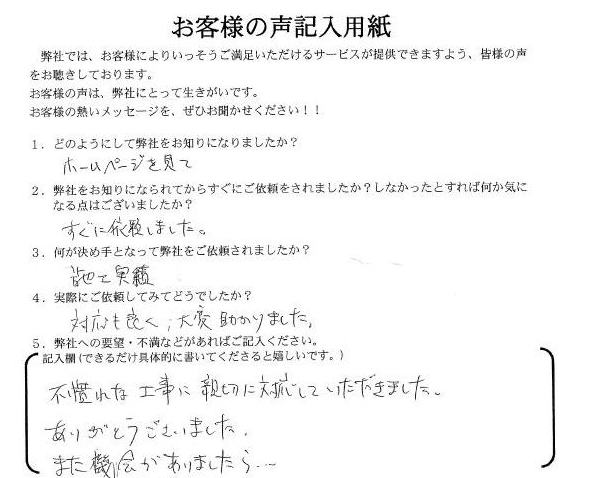 お客様の声記入用紙
弊社では、お客様によりいっそうご満足いただけるサービスが提供できますよう、皆様の声
をお聴きしております。
お客様の声は、弊社にとって生きがいです。
お客様の熱いメッセージを、ぜひお聞かせください！！
1．どのようにして弊社をお知りになりましたか？
ホームページを見て
2．弊社をお知りになられてからすぐにご依頼をされましたか？しなかったとすれば何か気に
なる点はございましたか？
すぐに依頼しました。
3．何が決め手となって弊社をご依頼されましたか？
実績
4．実際にご依頼してみてどうでしたか？
対応も良く、大変助かりました。
5．弊社への要望・不満などがあればご記入ください。
記入欄（できるだけ具体的に書いてくださると嬉しいです。）
不慣れな工事に親切に対応していただきました。
ありがとうございました。
また機会がありましたら…